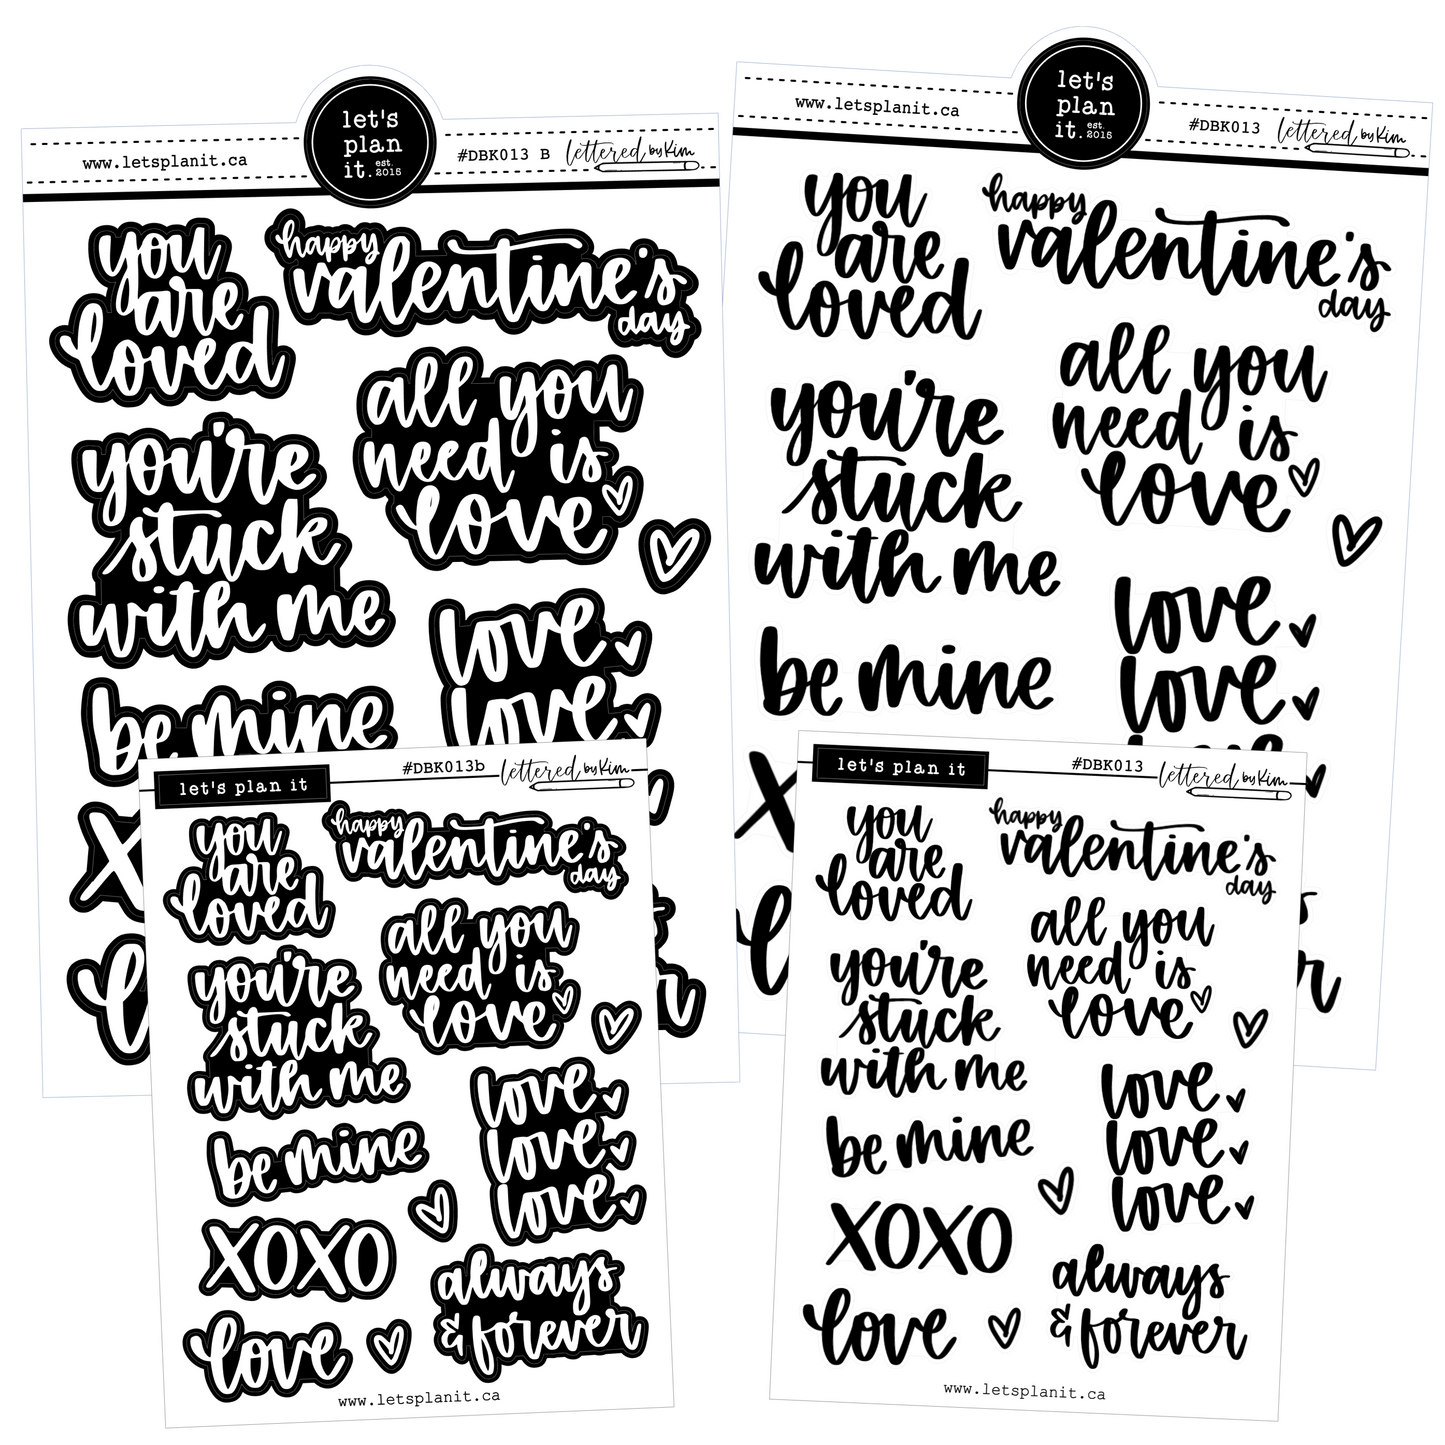 let's
plan
it. est. 2015
www.letsplanit.ca
#DBK013 B
lettered by Kim
you
are
loved
happy
valentine's
day
all you
need is
love
you're
stuck
with me
love
love
be mine
let's
plan
it. est. 2015
www.letsplanit.ca
#DBK013
lettered by Kim
you
are
loved
happy
valentine's
day
all you
need is
love
you're
stuck
with me
love
love
be mine
let's plan it
#DBK013b
lettered by Kim
you
are
loved
happy
valentine's
day
all you
need is
love
you're
stuck
with me
love
love
love
be mine
XOXO
always
& forever
love
www.letsplanit.ca
let's plan it
#DBK013
lettered by Kim
you
are
loved
happy
valentine's
day
all you
need is
love
you're
stuck
with me
love
love
love
be mine
XOXO
always
& forever
love
www.letsplanit.ca